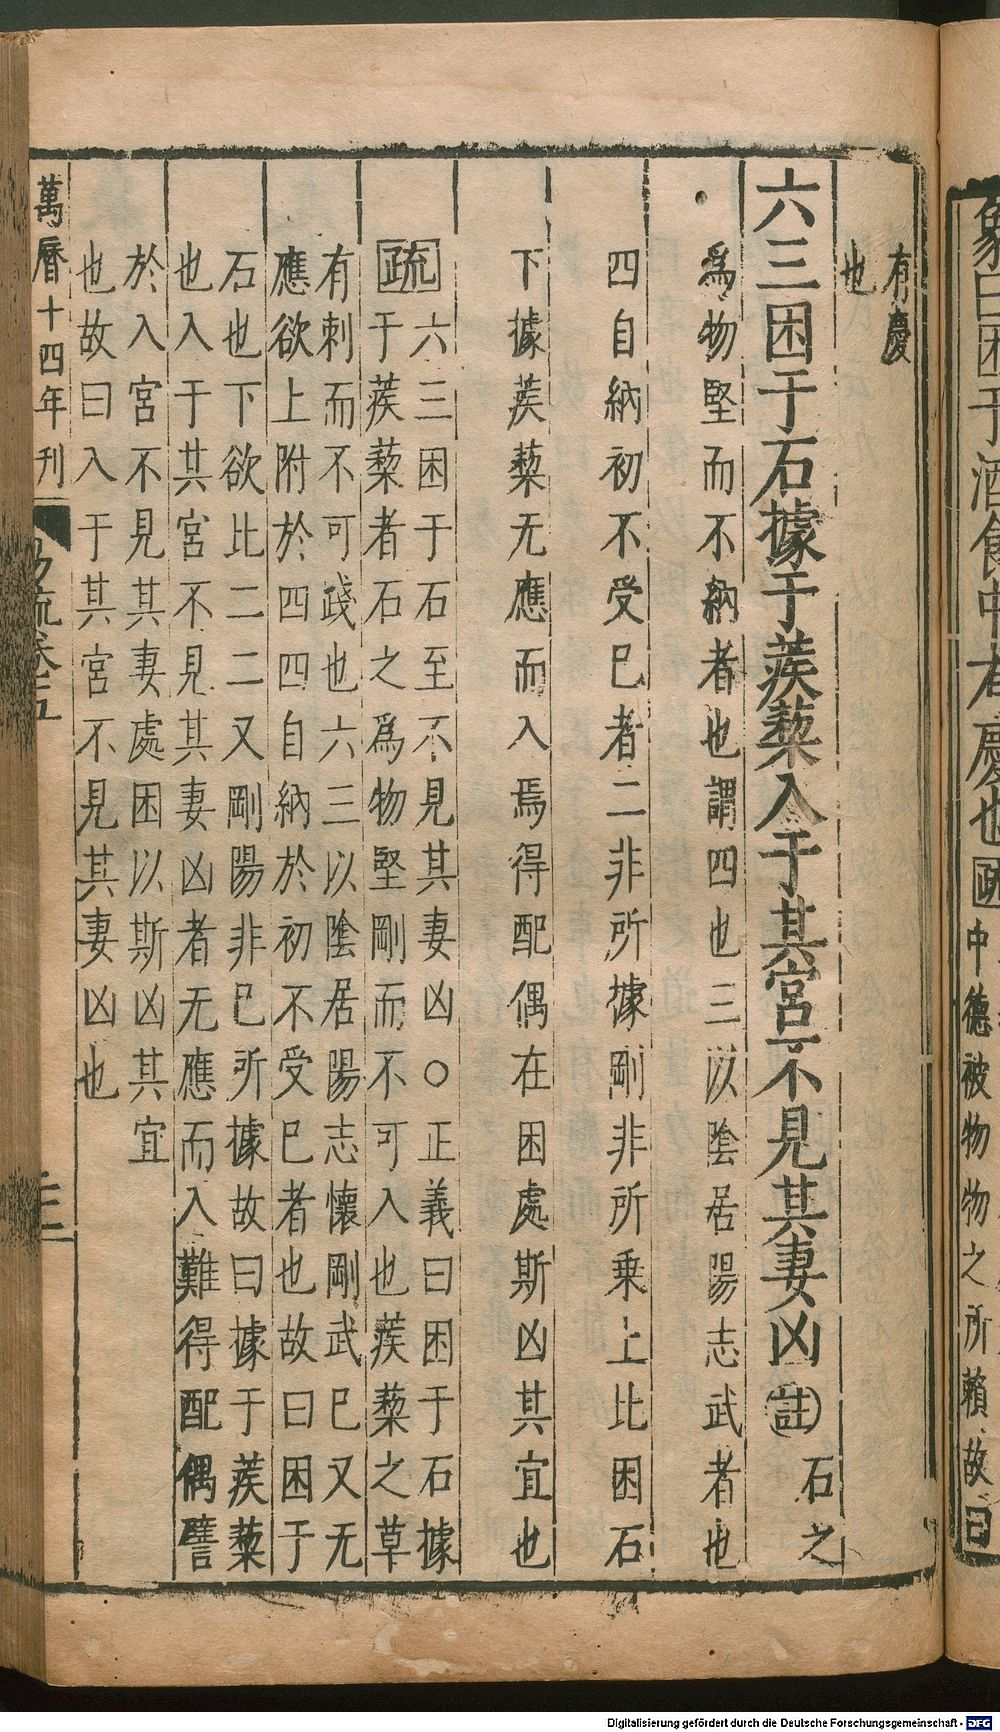 象曰困于酒食中有慶也疏中德被物物之所賴故曰
有慶
也
六三困于石據于蒺蔾入于其宮不見其妻凶註石之
爲物堅而不納者也謂四也三以陰居陽志武者也
四自納初不受巳者二非所據剛非所乗上比困石
下據蒺蔾无應而入焉得配偶在困處斯凶其宜也
疏六三困于石至不見其妻凶○正義曰困于石據
于蒺蔾者石之爲物堅剛而不可入也蒺蔾之草
有刺而不可踐也六三以陰居陽志懷剛武巳又无
應欲上附於四四自納於初不受巳者也故曰困于
石也下欲比二二又剛陽非巳所據故曰據于蒺蔾
也入于其宮不見其妻凶者无應而入難得配偶譬
於入宮不見其妻處困以斯凶其宜
也故曰入于其宮不見其妻凶也
萬曆十四年刊 易疏卷五
Digitalisierung gefördert durch die Deutsche Forschungsgemeinschaft - DFG